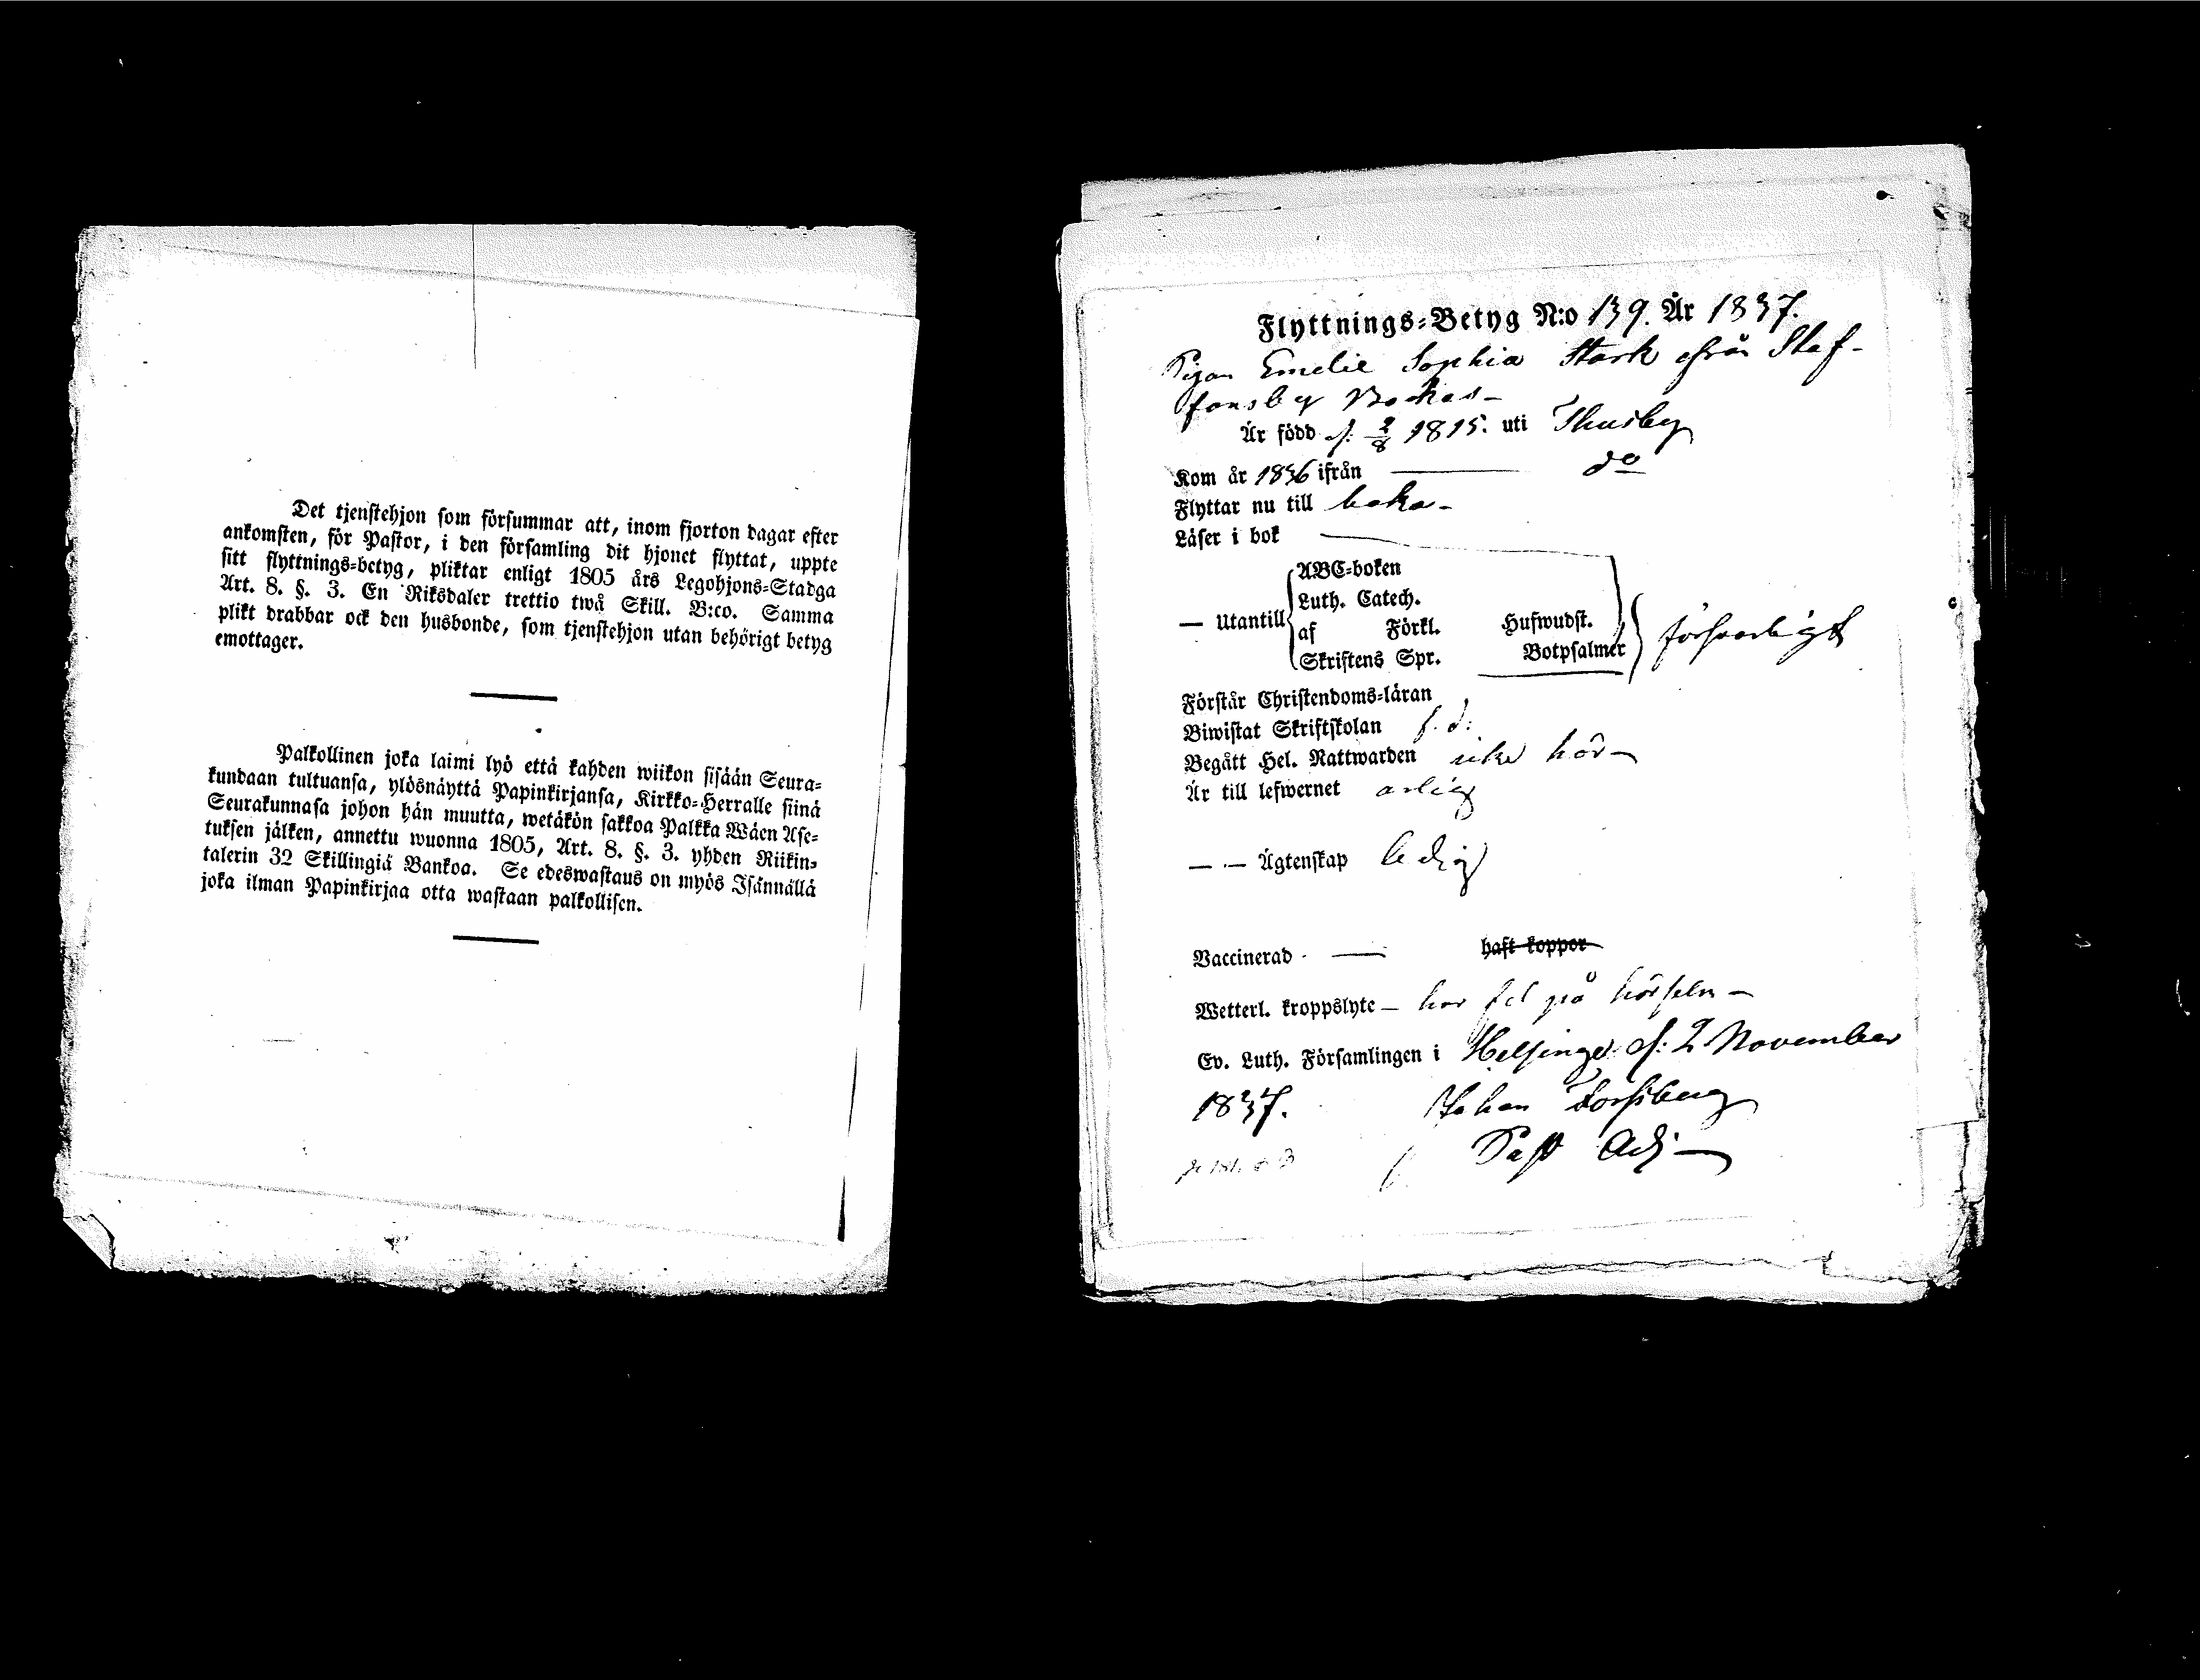 Det tjenstehjon som försummar att, inom fjorton dagar efter
ankomsten, för Pastor, i den församling dit hjonet flyttat, uppte
sitt flyttnings-betyg, pliktar enligt 1805 års Legohjons-Stadga
Art. 8. §. 3. En Riksdaler trettio twå Skill. B:co. Samma
plikt drabbar ock den husbonde, som tjenstehjon utan behörigt betyg
emottager.
Palkollinen joka laimi lyö että kahden wiikon sisään Seura-
kundaan tultuansa, ylösnäyttä Papinkirjansa, Kirkko-Herralle siinä
Seurakunnasa johon hän muutta, wetäkön sakkoa Palkka Wäen Ase-
tuksen jälken, annettu wuonna 1805, Art. 8. §. 3. yhden Riikin-
talerin 32 Skillingiä Bankoa. Se edeswastaus on myös Isännällä
joka ilman Papinkirjaa otta wastaan palkollisen.
Flyttnings-Betyg N:o 139. År 1837.
Pigan Emelie Sophia Stark ifrån Staf-
fansby Backas -
Är född d. 2/8 1815. uti Thusby
Kom år 1836 ifrån do
Flyttar nu till baka -
Läser i bok
— Utantill
ABC-boken
Luth. Catech.
af Förkl. Hufwudst.
Skriftens Spr. Botpsalmer
försvarligt
Förstår Christendoms-läran
Biwistat Skriftskolan
Begått Hel. Nattwarden icke här -
Är till lefwernet ärlig
— — Ägtenskap ledig
Vaccinerad — haft koppor
Wetterl. kroppslyte — har fel på hörseln -
Ev. Luth. Församlingen i Helsinge d: 2 November
1837. Johan Forssberg
Past Adj